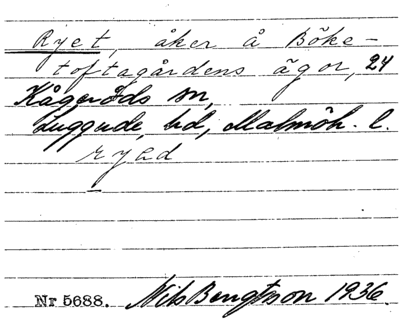 Ryet, åker å Böke-
toftagårdens ägor, 24
Kågeröds sn,
Luggude, hd, Malmöh. l.
ryəd
Nr 5688. Nils Bengtsson 1936.